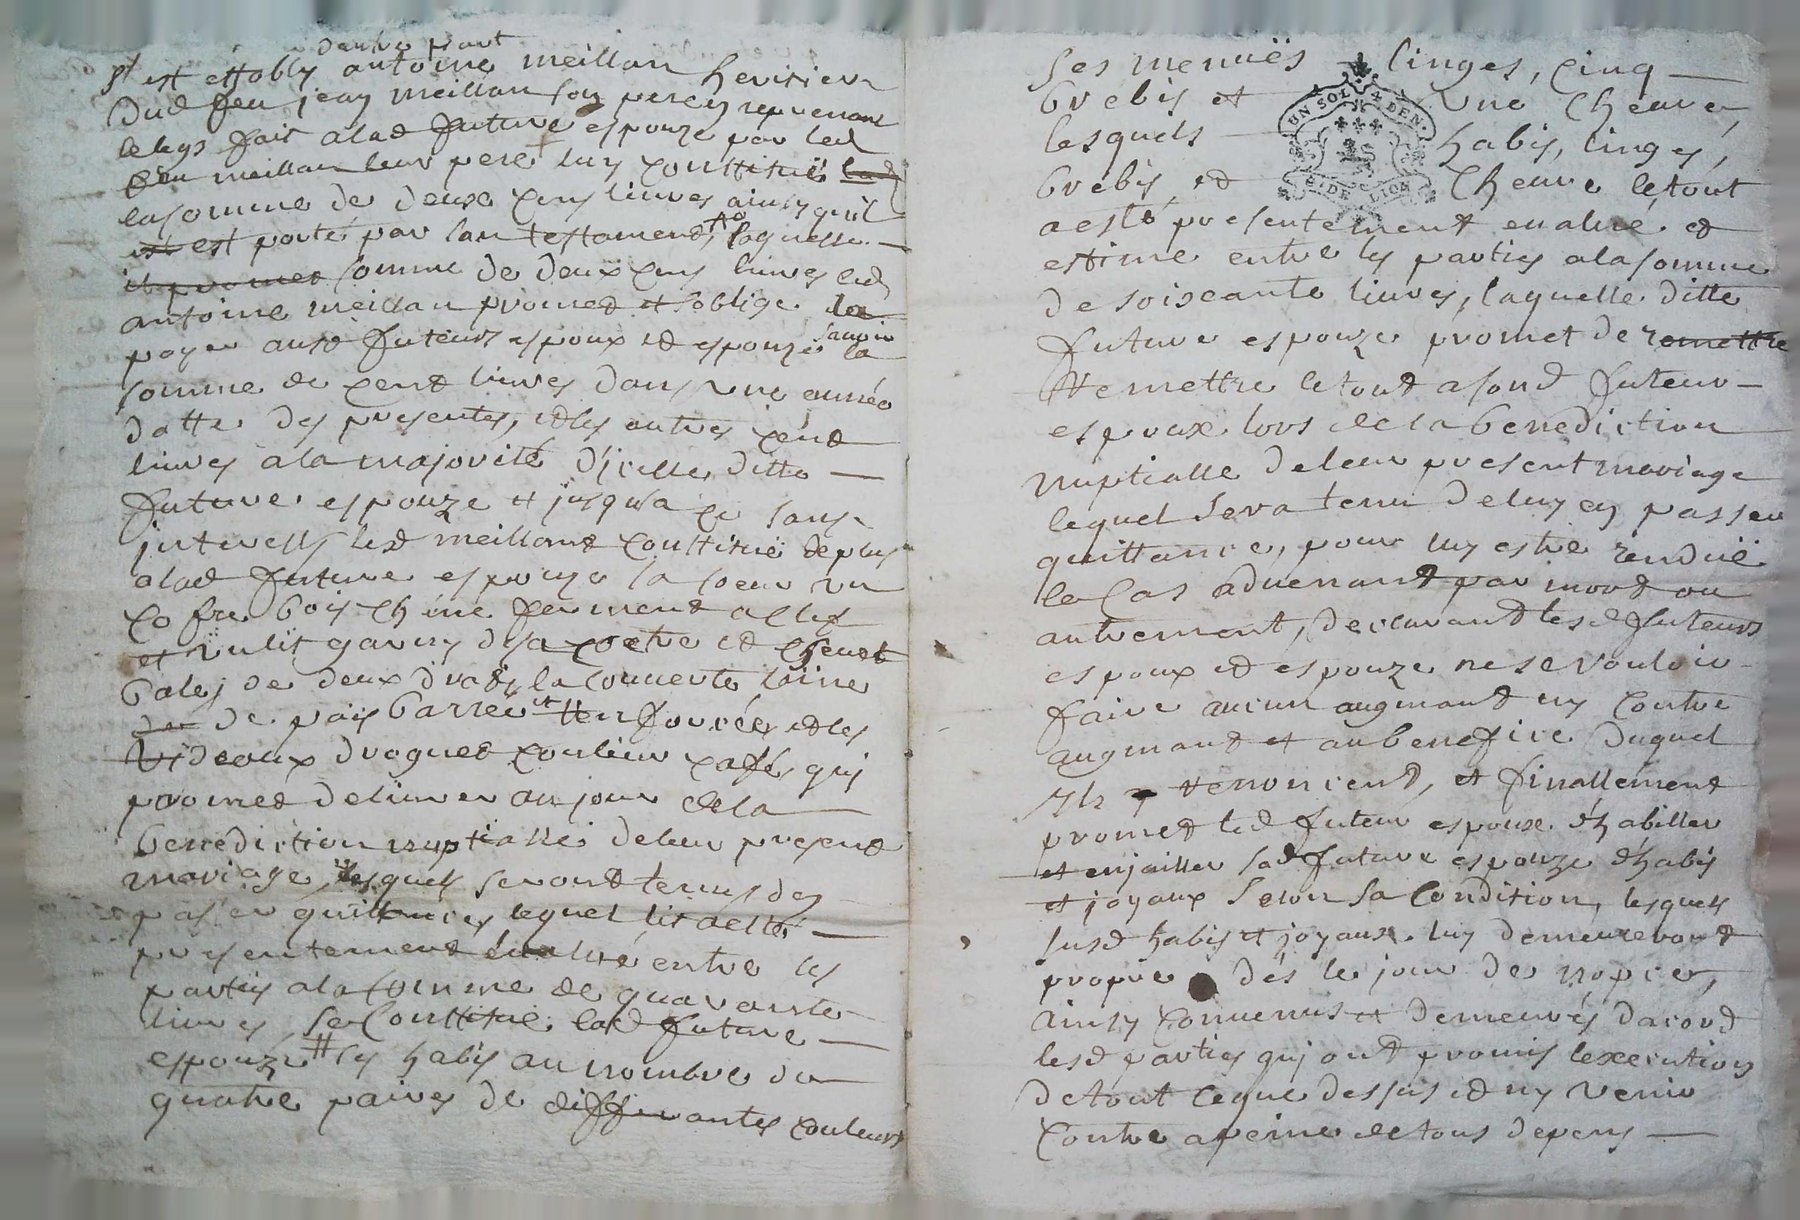 d'autre part
s'est estably antoine meillan heritier
dud feu jean meillan son pere en reprenant
le legs fait a lad future espouze par led
feu meillan leur pere luy constitue
la somme de deux cens livres ainsy qu'il
est porté par son testament, laquelle
somme de deux cens livres led
antoine meillan promet et s'oblige
payer ausd futeurs espoux et espouze scavoir la
somme de cent livres dans une année
datte des presentes, et les autres cent
livres a la majorité d'jcelle ditte
future espouze et jusqu'a ce sans
jnterests led meillant constitue de plus
a lad future espouze sa soeur un
cofre bois chene fermant a clef
et un lit garny de sa coetre et
de deux draps la couverte laine
de païs barrée et les
rideaux droguet couleur cafés, qu'j
promet delivrer au jour de la
benediction nuptialle de leur present
mariage, lesquels seront tenus d'en
passer quittances lequel lit a esté
presentement evalué entre les
parties a la somme de quarante
livres, se constitue lad future
espouze ses habis au nombre de
quatre paires de differantes couleurs
ses menuës linges, cinq
brebis et une cheuve,
lesquels habis, linges,
brebis, et cheuve le tout
a esté presentement evalué et
estimé entre les parties a la somme
de soiscante livres, laquelle ditte
future espouze promet de remettre
remettre le tout a sond futeur
espoux lors de la benediction
nuptialle de leur present mariage
lequel sera tenu de luy en passer
quittance, pour luy estre renduë
le cas advenant par mort ou
autrement, declarant lesd futeurs
espoux et espouze ne se vouloir
faire aucun augmant ny contre
augmant et au benefice duquel
jls y renoncent, et finallement
promet led futeur espoux d'habiller
et enjailler sad future espouze d'habis
et joyaux selon sa condition, lesquels
susd habis et joyaux luy demeureront
propre dés le jour de nopces,
ainsy convenus et demeurés d'acord
lesd parties qu'j ont promis l'execution
de tout ce que dessus et ny venir
contre a peine de tous depens
UN SOL 4 DEN.
G. DE LION